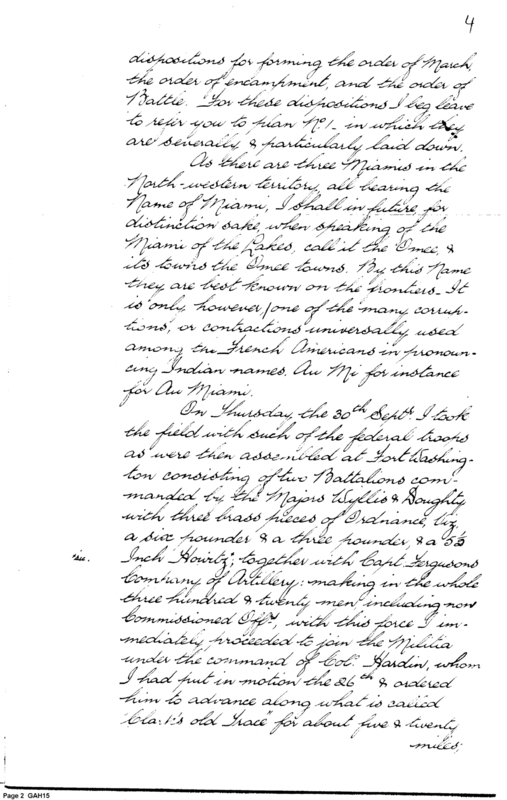 4
dispositions for forming the order of March,
the order of encampment, and the order of
Battle. For these dispositions I beg leave
to refer you to plan No. 1 - in which they
are severally & particularly laid down.
As there are three Miamis in the
North-western territory, all bearing the
Name of Miami, I shall in future, for
distinction sake, when speaking of the
Miami of the Lakes, call it the Omee, &
its towns the Omee towns. By this Name
they are best known on the frontiers - It
is only, however, one of the many corrup-
tions, or contractions universally used
among the French Americans in pronoun-
cing Indian names. Au Mi for instance
for Au Miami.
On Thursday, the 30th Septr. I took
the field with such of the federal troops
as were then assembled at Fort Washing-
ton consisting of two Battalions com-
manded by the Majors Wyllis & Doughty
with three brass pieces of Ordnance, viz,
a six pounder & a three pounder, & a 5½
Inch Howitz; together with Capt Fergusons
Company of Artillery: making in the whole
three hundred & twenty men including non
Commissioned Offrs, with this force I im-
mediately proceeded to join the Militia
under the command of Colo. Hardin, whom
I had put in motion the 26th & ordered
him to advance along what is called
"Clark's old Trace" for about five & twenty
miles;
Page 2 GAH15